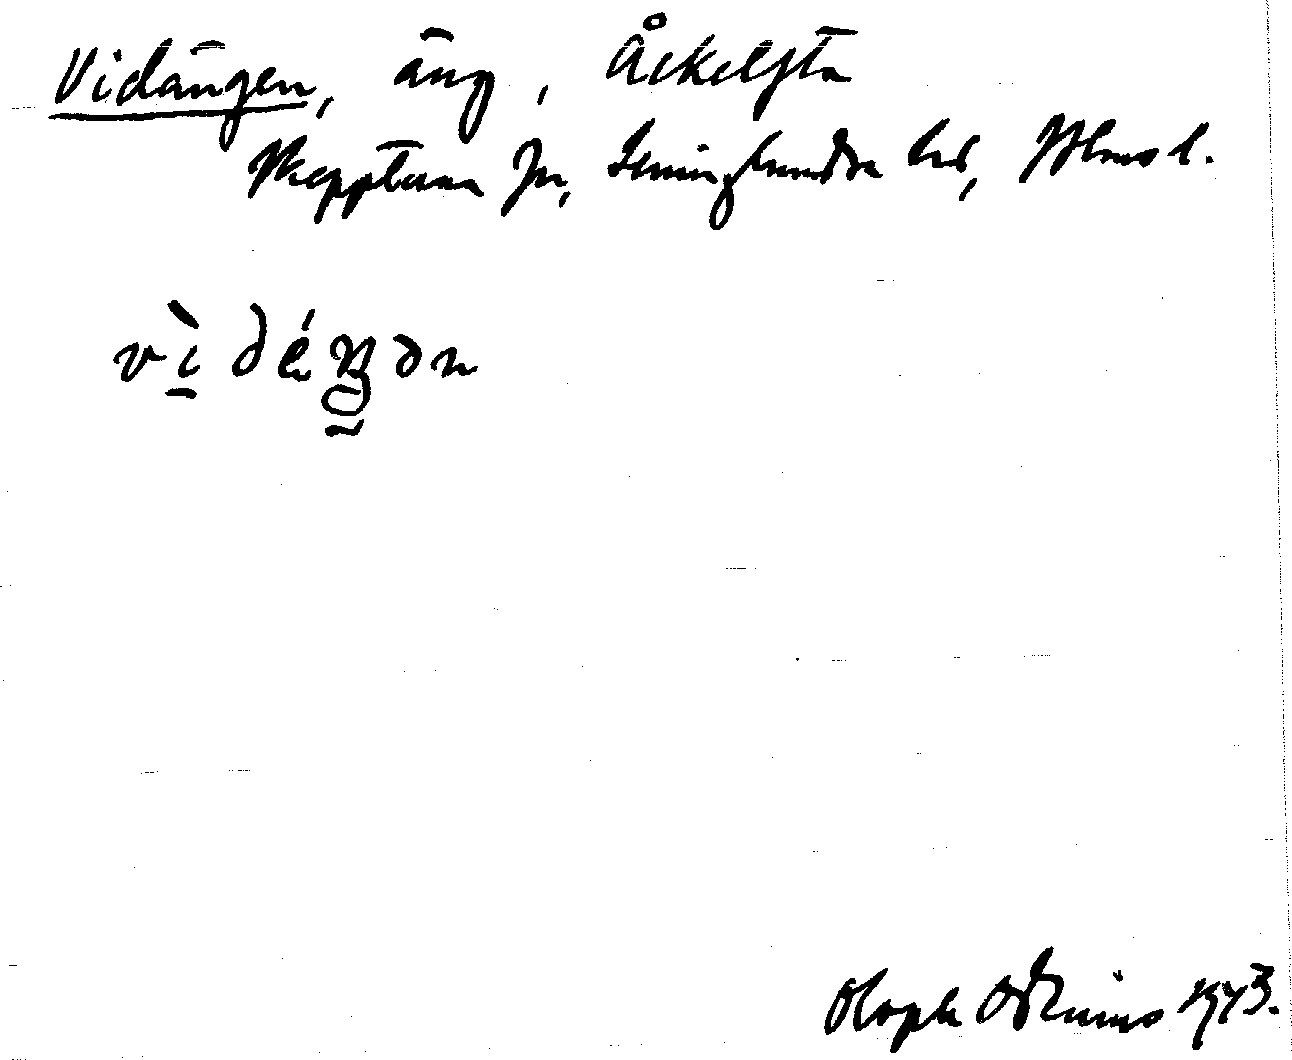 Vidängen, äng, Åckelsta
Skepptuna sn, Seminghundra hd, Sthms l.
vìdéŋən
Oloph Odenius 1973.